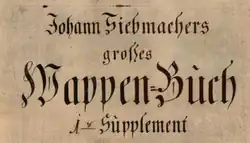 Johann Siebmachers
großes
Wappen=Bůch
1r Sůpplement